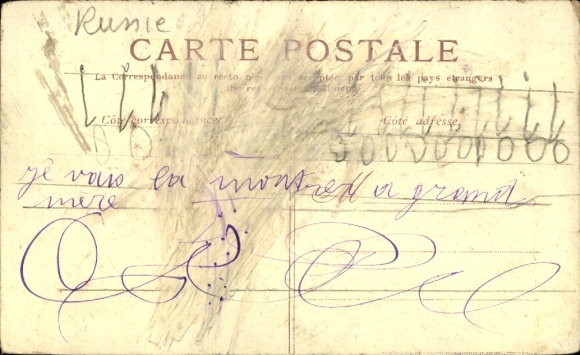 Russie
CARTE POSTALE
La Correspondance au recto n'est pas acceptée par tous les pays étrangers
Côté correspondance Côté adresse
je vais la montrer a grand
mere